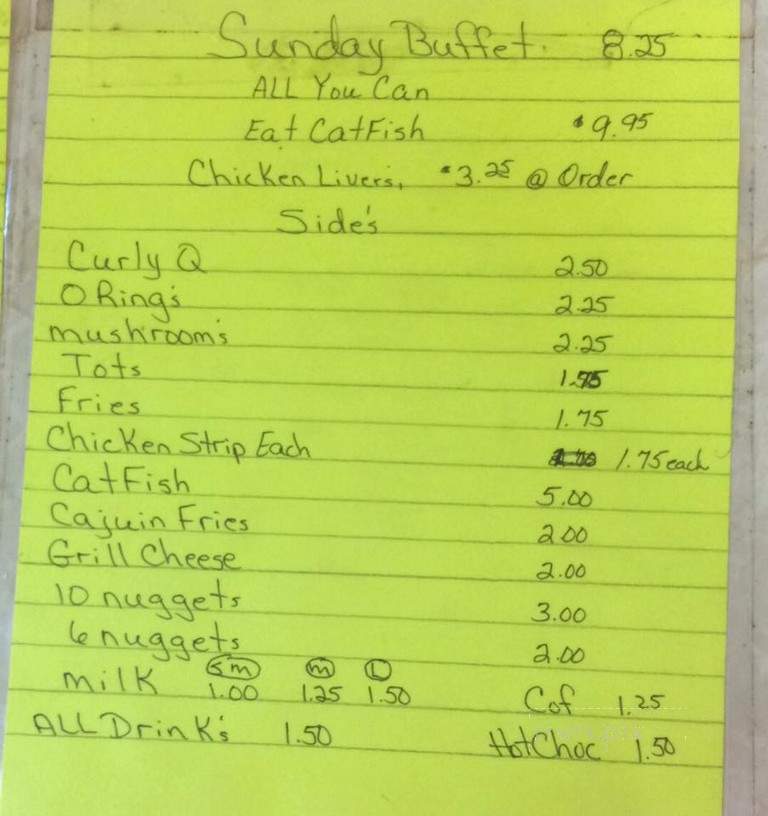 Sunday Buffet. 8.25
ALL You Can
Eat CatFish $9.95
Chicken Livers, $3.25 @ Order
Side's
Curly Q 2.50
O Ring's 2.25
mushroom's 2.25
Tots 1.75
Fries 1.75
Chicken Strip Each 1.75 each
CatFish 5.00
Cajuin Fries 2.00
Grill Cheese 2.00
10 nuggets 3.00
6 nuggets 2.00
Sm m L
milk 1.00 1.25 1.50 Cof 1.25
ALL Drink's 1.50 HotChoc 1.50